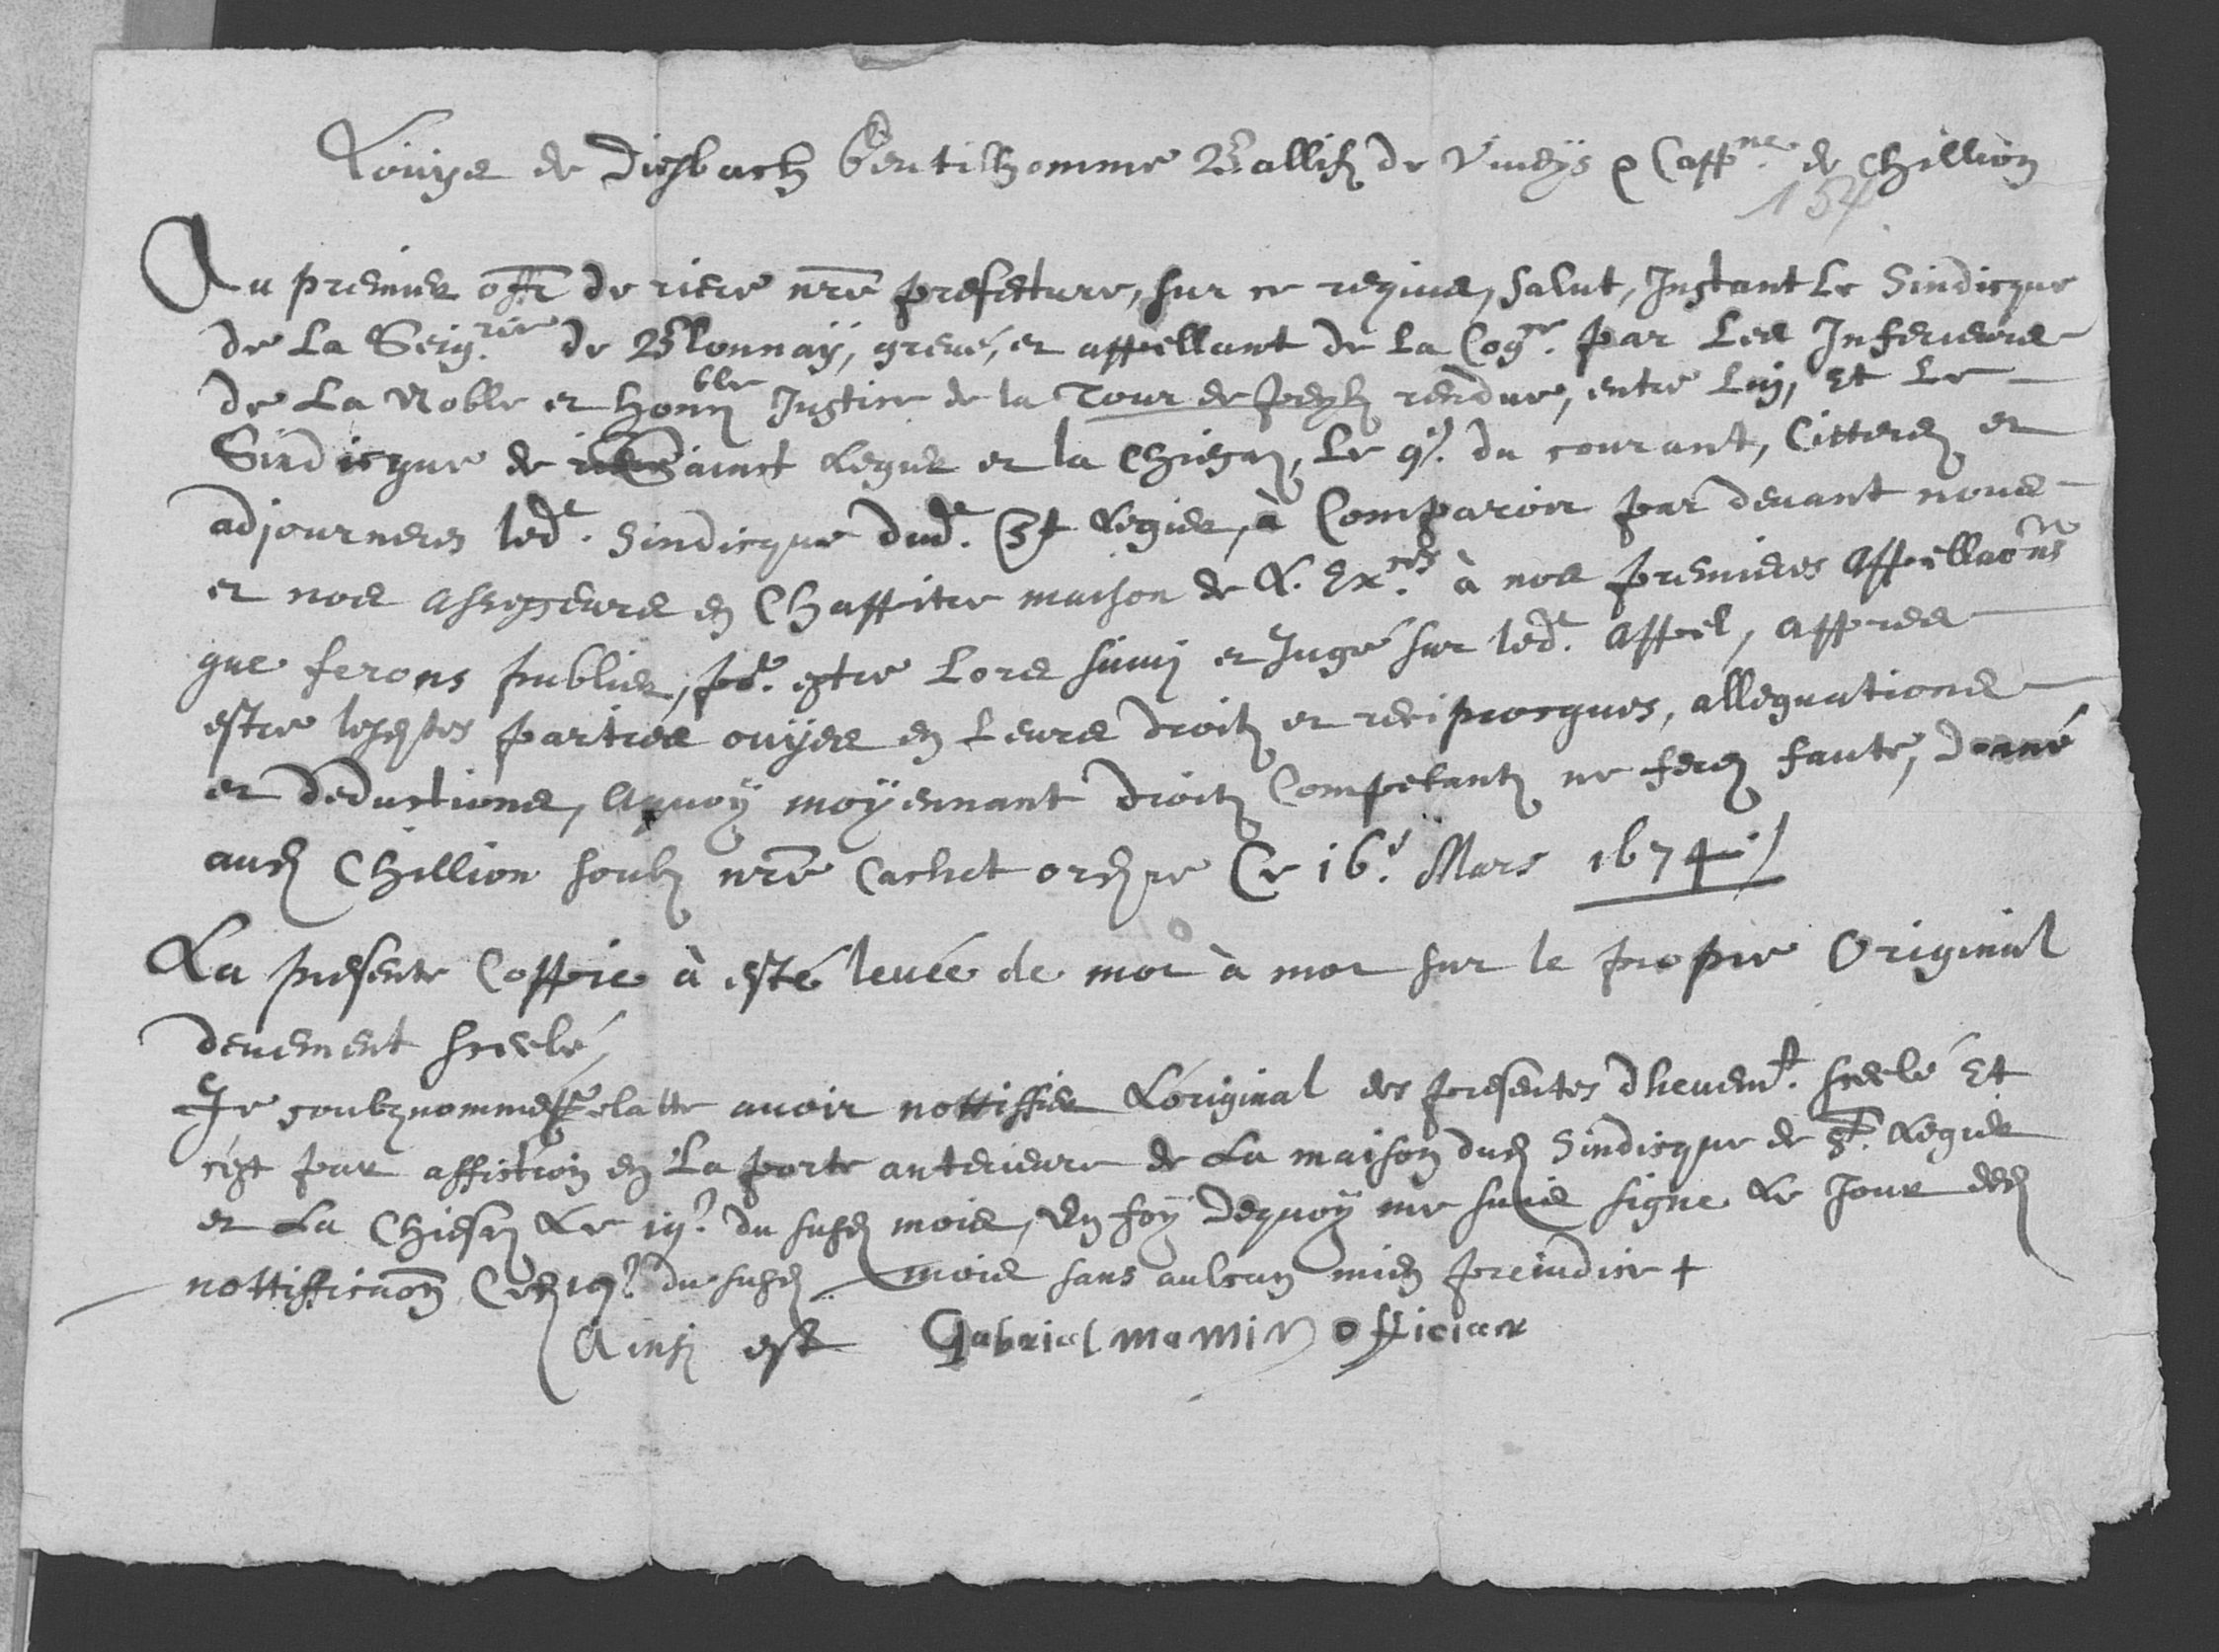 Louys de Diesbach Gentilhomme Ballif de Viveys & Cappne. de Chillion
154
Au premier offr de riere nre prefecture, sur ce requis, salut, Instant le Sindicque
de La Seig.rie de Blonnaÿ, grevé, et appellant de La Cog.ce par Les Inferieurs
de La Noble et honnble Justice de la Tour de Peylz rendue, entre Luy, Et Le
Sindicque de Sainct Legier et la Chiesaz, Le 9e. du courant, Citterez et
adjourneres led. Sindicque dud. St Legier, à Comparoir par devant nous
et nos assesseurs en Chappitre maison de L. Exces. à nos premieres Appellaons
que ferons publier, pr. estre Lors suivy et Jugé sur led. Appel, appres
estre lesdites parties ouÿes en Leurs droitz et reciprocques, allegnations
et deductions, aquoy moÿennant droitz Competantz ne ferez faute, donné
aud Chillion soubz nre Cachet ordre Ce 16e. Mars 1674
La presente Coppie à esté levée de mot à mot sur le propre Original
devement seelé,
Je soubznommé relatte avoir nottiffier L'original des presentes dhevemt. seelé Et
c'est par affiction en La porte anterieure de La maison dud Sindicque de St. Legier
et La Chiesaz Le 19e. du susd mois, En foy dequoÿ me suis signe Le Jour de
nottifficaon Ce 19e. du susd mois sans aulcun mien preiudice +
Ainsy est Gabriel mamin officier